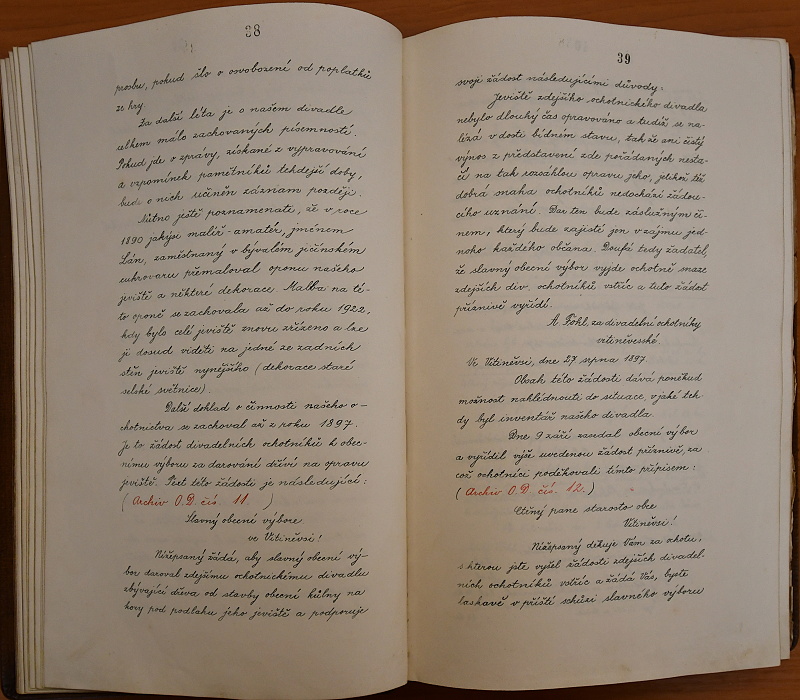 38
prosbu, pokud šlo o osvobození od poplatků
ze hry.
Za další léta je o našem divadle
celkem málo zachovaných písemností.
Pokud jde o zprávy, získané z vypravování
a vzpomínek pamětníků tehdejší doby,
bude o nich učiněn záznam později.
Nutno ještě poznamenati, že v roce
1890 jakýsi malíř-amatér, jménem
Lán, zaměstnaný v bývalém jičínském
cukrovaru přemaloval oponu našeho
jeviště a některé dekorace. Malba na té-
to oponě se zachovala až do roku 1922,
kdy bylo celé jeviště znovu zřízeno a lze
ji dosud viděti na jedné ze zadních
stěn jeviště nynějšího (dekorace staré
selské světnice).
Další doklad o činnosti našeho o-
chotnictva se zachoval až z roku 1897.
Je to žádost divadelních ochotníků k obec-
nímu výboru za darování dříví na opravu
jeviště. Text této žádosti je následující:
(Archiv O.D. čís. 11.)
Slavný obecní výbore
ve Vitiněvsi!
Nížepsaný žádá, aby slavný obecní vý-
bor daroval zdejšímu ochotnickému divadlu
zbývající dřeva od stavby obecní kůlny na
kozy pod podlahu jeho jeviště a podporuje
39
svoji žádost následujícími důvody:
Jeviště zdejšího ochotnického divadla
nebylo dlouhý čas opravováno a tudíž se na-
lézá v dosti bídném stavu, tak že ani čistý
výnos z představení zde pořádaných nesta-
čí na tak rozsáhlou opravu jeho, jelikož též
dobrá snaha ochotníků nedochází žádou-
cího uznání. Dar ten bude záslužným či-
nem, který bude zajisté jen v zájmu jed-
noho každého občana. Doufá tedy žadatel,
že slavný obecní výbor vyjde ochotně snaze
zdejších div. ochotníků vstříc a tuto žádost
příznivě vyřídí.
A. Fohl, za divadelní ochotníky
vitiněvesské.
Ve Vitiněvsi, dne 27. srpna 1897.
Obsah této žádosti dává poněkud
možnost nahlédnouti do situace, v jaké teh-
dy byl inventář našeho divadla.
Dne 9 září zasedal obecní výbor
a vyřídil výše uvedenou žádost příznivě, za
což ochotníci poděkovali tímto přípisem:
(Archiv O.D. čís. 12.)
Ctěný pane starosto obce
Vitiněvsi!
Nížepsaný děkuje Vám za ochotu,
s kterou jste vyšel žádosti zdejších divadel-
ních ochotníků vstříc a žádá Vás, byste
laskavě v příští schůzi slavného výboru